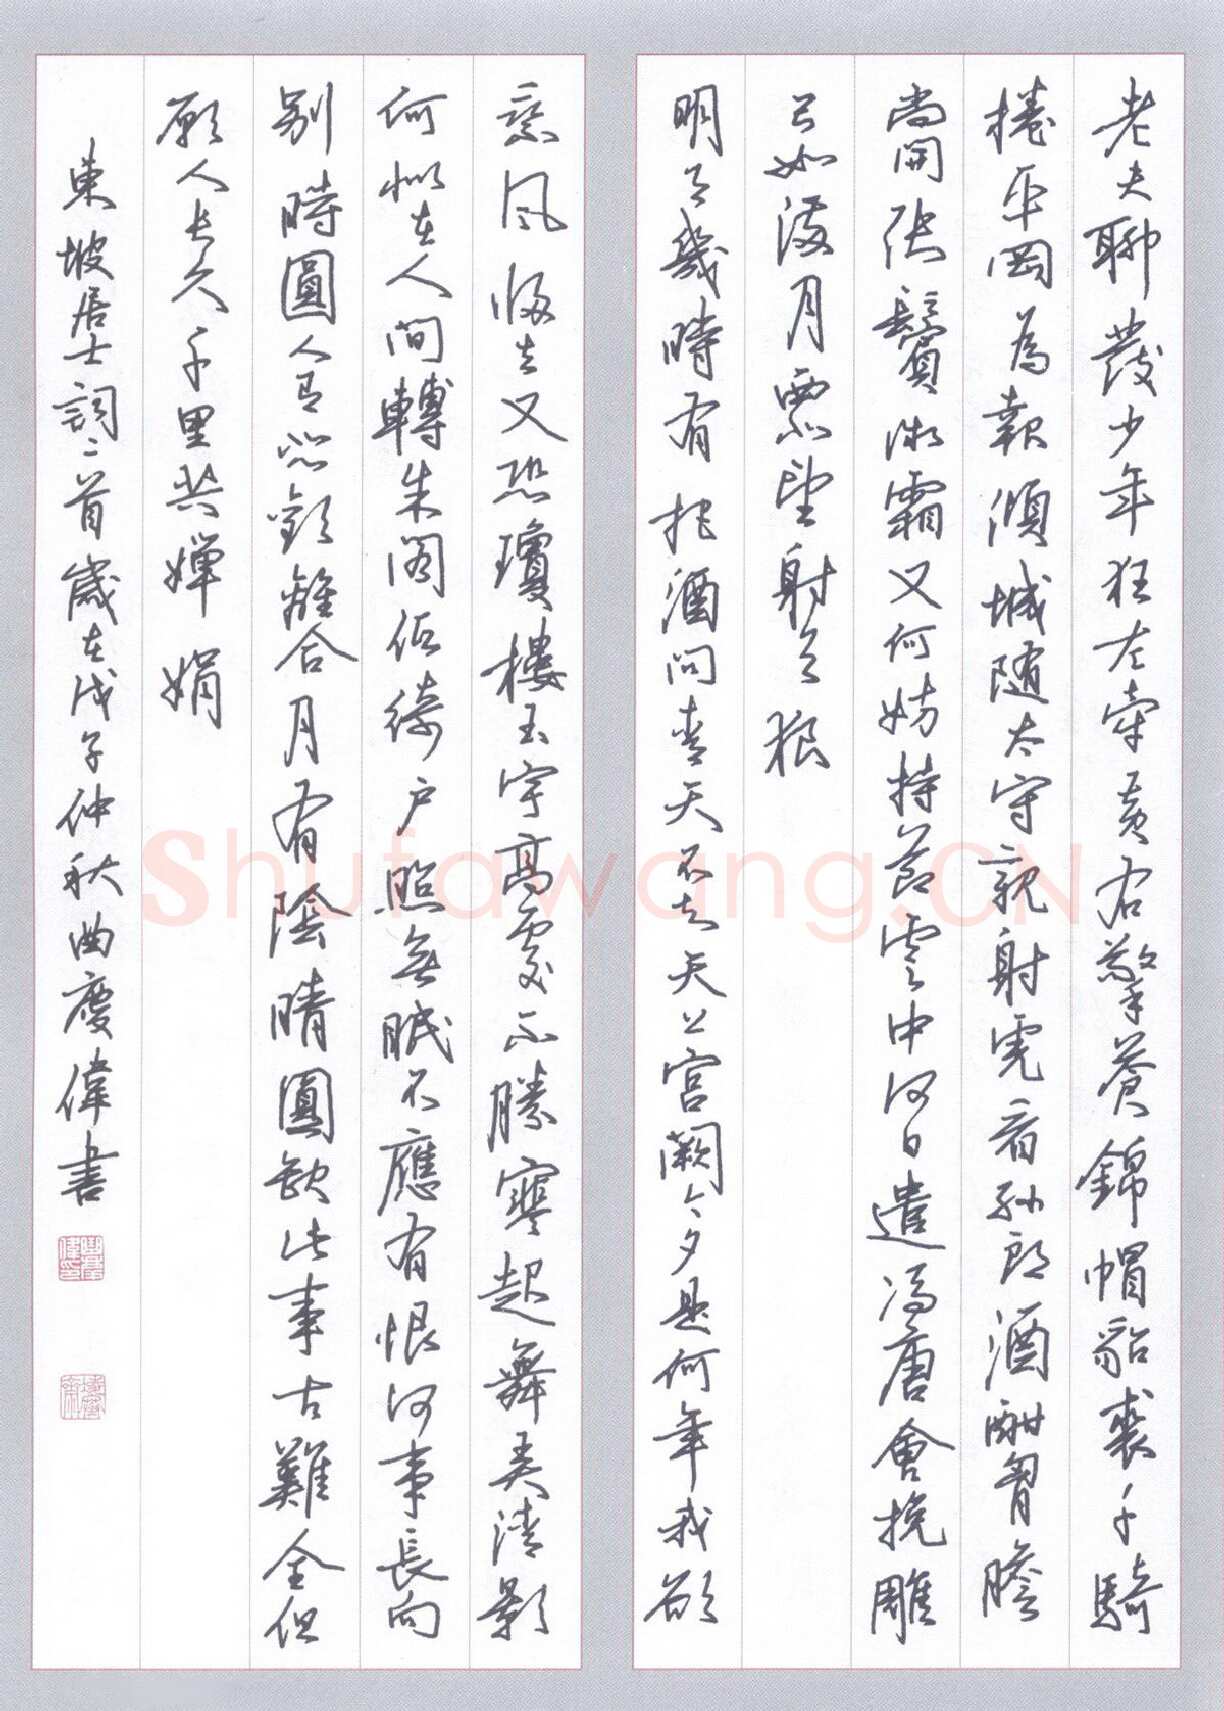 老夫聊發少年狂左牽黃右擎蒼錦帽貂裘千騎
捲平岡為報傾城随太守親射虎看孫郎酒酣胷膽
尚開張鬢微霜又何妨持節雲中何日遣馮唐會挽雕
弓如滿月西北望射天狼
明月幾時有把酒問青天不知天上宮闕今夕是何年我欲
乘風歸去又恐瓊樓玉宇高處不勝寒起舞弄清影
何似在人間轉朱閣低綺户照無眠不應有恨何事長向
别時圓人有悲歡離合月有陰晴圓缺此事古難全但
願人長久千里共嬋娟
東坡居士詞二首歲在戊子仲秋曲慶偉書
Shufawang.CN